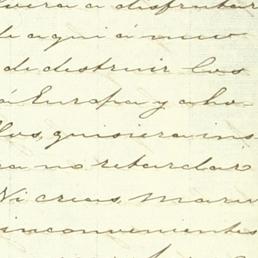 vera a disfrutar
de aqui á nuev
de destruir los
á Europa y aho-
llos, quisiera ins
ra no retardar
Ni creas, Maru
inconvenientes